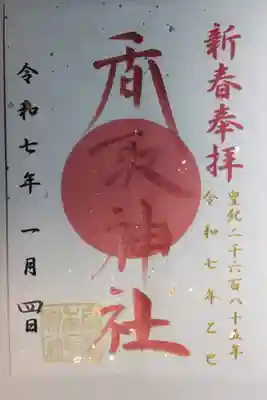 新春奉拝
皇紀二千六百八十五年
令和七年乙巳
香取神社
令和七年 一月 四日